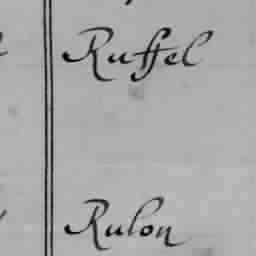 Ruffel
Rulon